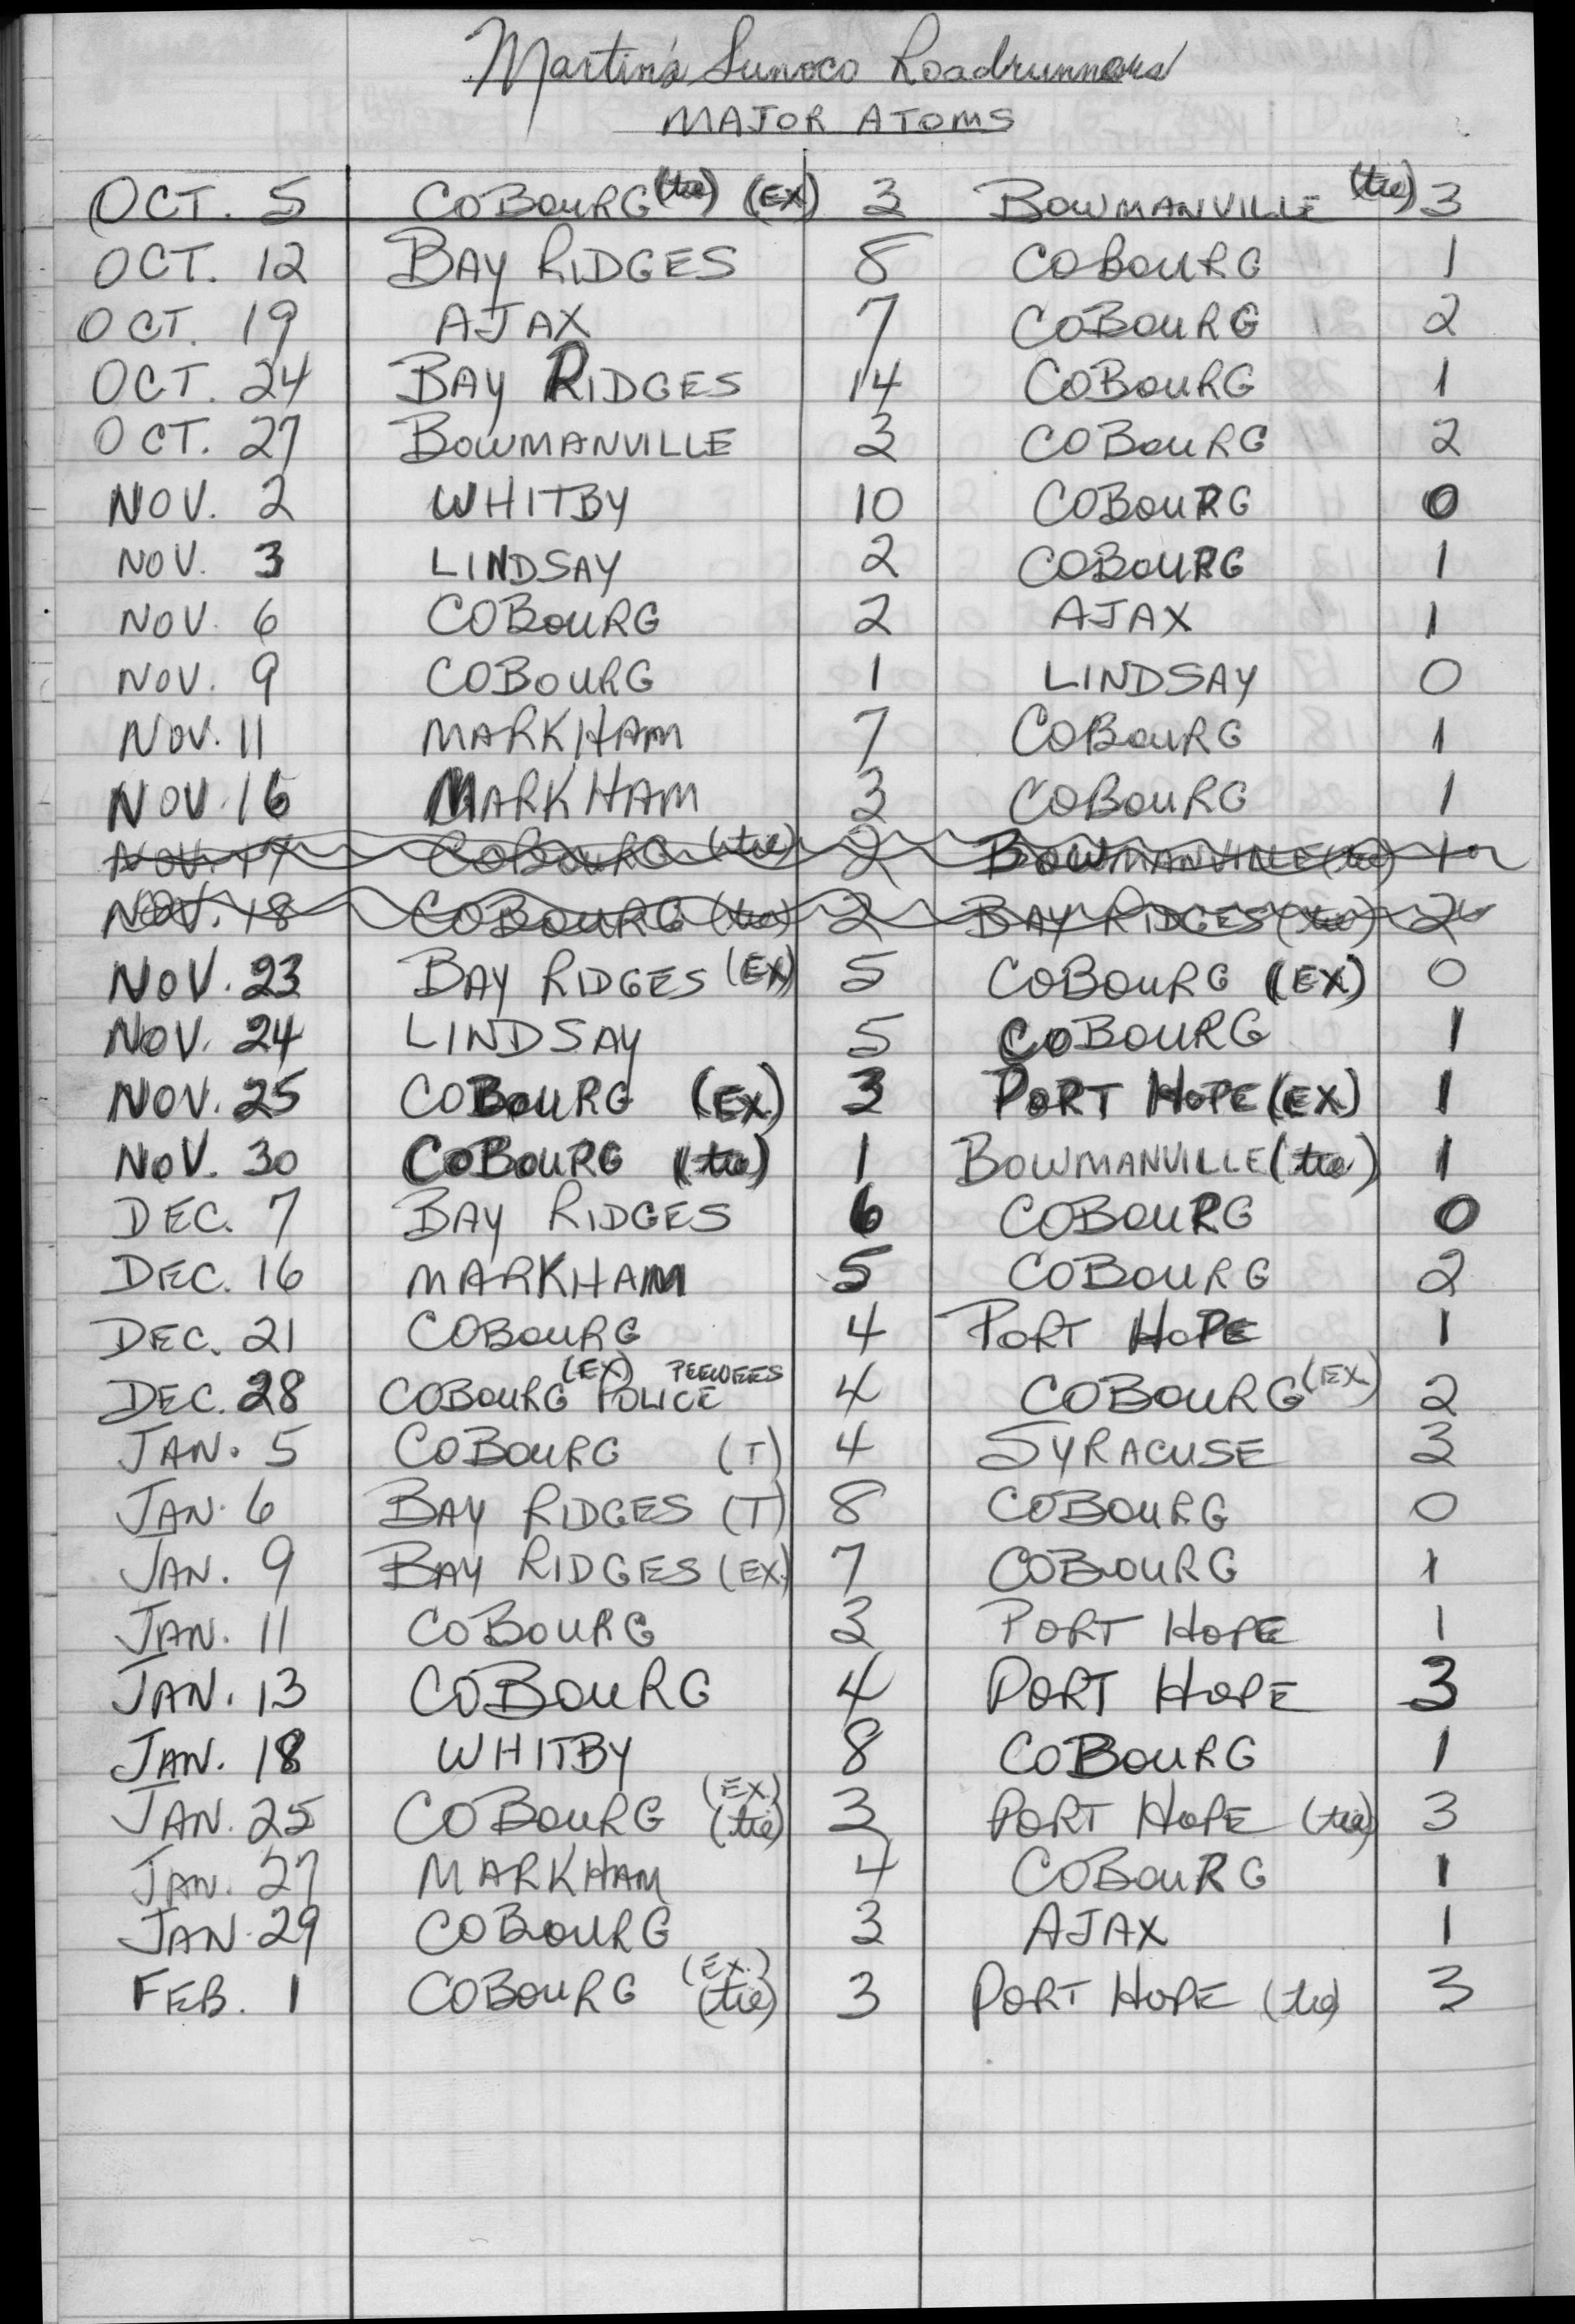 Martin's Sunoco Roadrunners
MAJOR ATOMS
OCT. 5 COBOURG (tie) (EX) 3 BOWMANVILLE (tie) 3
OCT. 12 BAY RIDGES 8 COBOURG 1
OCT. 19 AJAX 7 COBOURG 2
OCT. 24 BAY RIDGES 14 COBOURG 1
OCT. 27 BOWMANVILLE 3 COBOURG 2
NOV. 2 WHITBY 10 COBOURG 0
NOV. 3 LINDSAY 2 COBOURG 1
NOV. 6 COBOURG 2 AJAX 1
NOV. 9 COBOURG 1 LINDSAY 0
NOV. 11 MARKHAM 7 COBOURG 1
NOV. 16 MARKHAM 3 COBOURG 1
NOV. 17 COBOURG (tie) 2 BOWMANVILLE (tie) 1
NOV. 18 COBOURG (tie) 2 BAY RIDGES (tie) 2
NOV. 23 BAY RIDGES (EX) 5 COBOURG (EX) 0
NOV. 24 LINDSAY 5 COBOURG 1
NOV. 25 COBOURG (EX.) 3 PORT HOPE (EX.) 1
NOV. 30 COBOURG (tie) 1 BOWMANVILLE (tie) 1
DEC. 7 BAY RIDGES 6 COBOURG 0
DEC. 16 MARKHAM 5 COBOURG 2
DEC. 21 COBOURG 4 PORT HOPE 1
DEC. 28 COBOURG (EX) POLICE PEEWEES 4 COBOURG (EX.) 2
JAN. 5 COBOURG (T) 4 SYRACUSE 3
JAN. 6 BAY RIDGES (T) 8 COBOURG 0
JAN. 9 BAY RIDGES (EX.) 7 COBOURG 1
JAN. 11 COBOURG 3 PORT HOPE 1
JAN. 13 COBOURG 4 PORT HOPE 3
JAN. 18 WHITBY 8 COBOURG 1
JAN. 25 COBOURG (EX.) (tie) 3 PORT HOPE (tie) 3
JAN. 27 MARKHAM 4 COBOURG 1
JAN. 29 COBOURG 3 AJAX 1
FEB. 1 COBOURG (EX.) (tie) 3 PORT HOPE (tie) 3